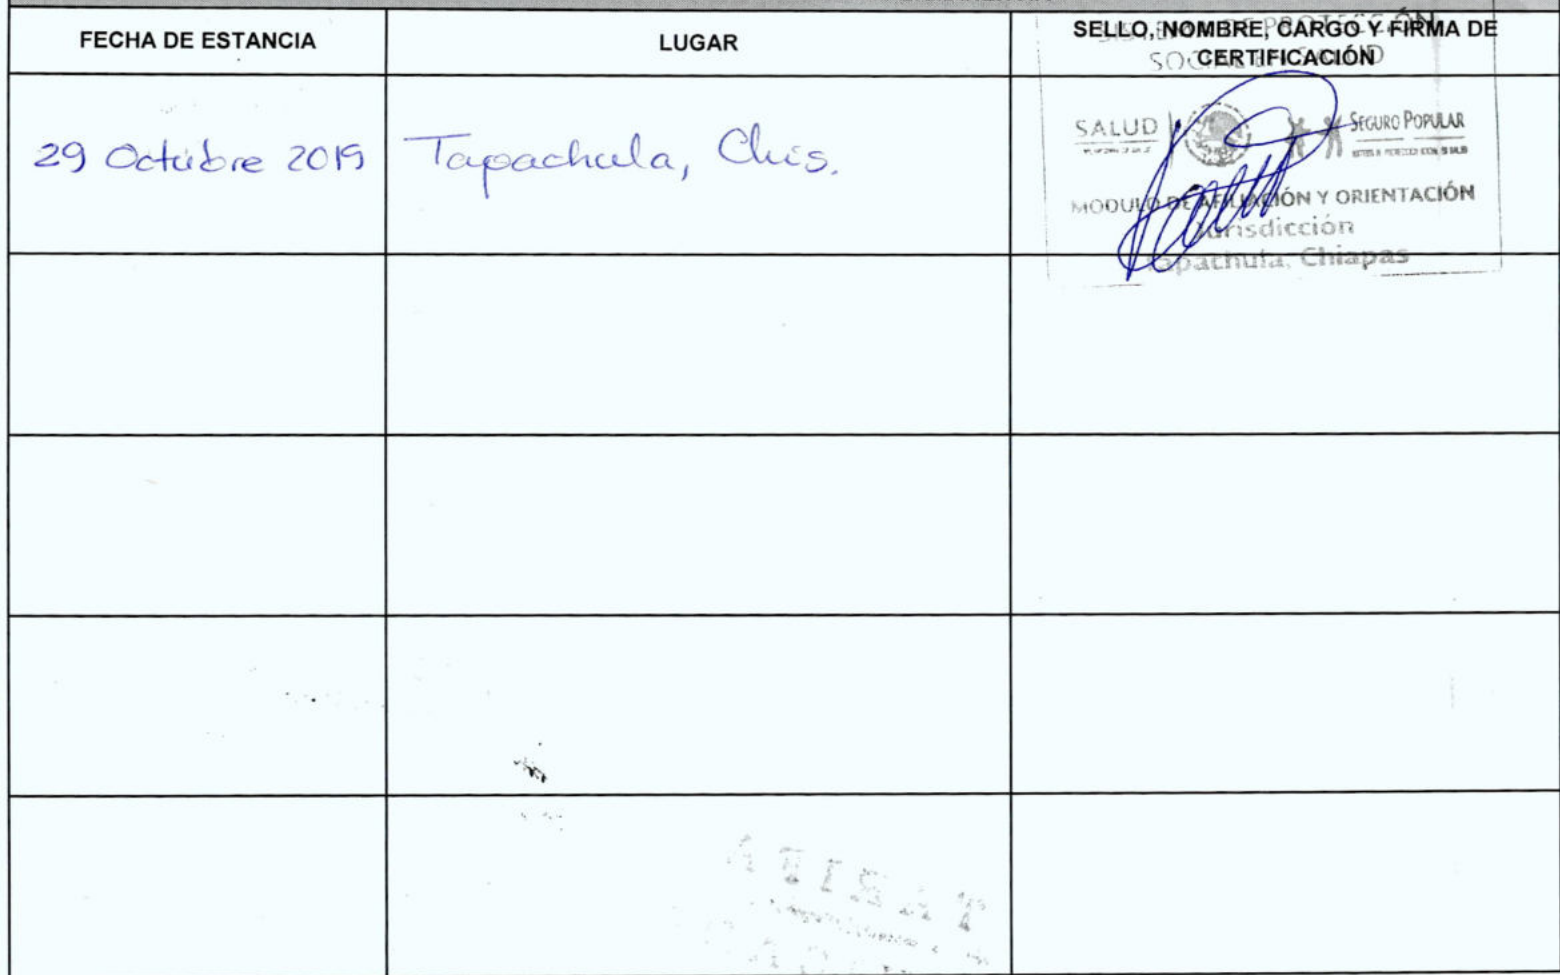 FECHA DE ESTANCIA
LUGAR
SELLO, NOMBRE, CARGO Y FIRMA DE
CERTIFICACIÓN
29 Octubre 2019
Tapachula, Chis.
PROTECCIÓN
SALUD
SEGURO POPULAR
MODULO DE AFILIACIÓN Y ORIENTACIÓN
Jurisdicción
Tapachula, Chiapas